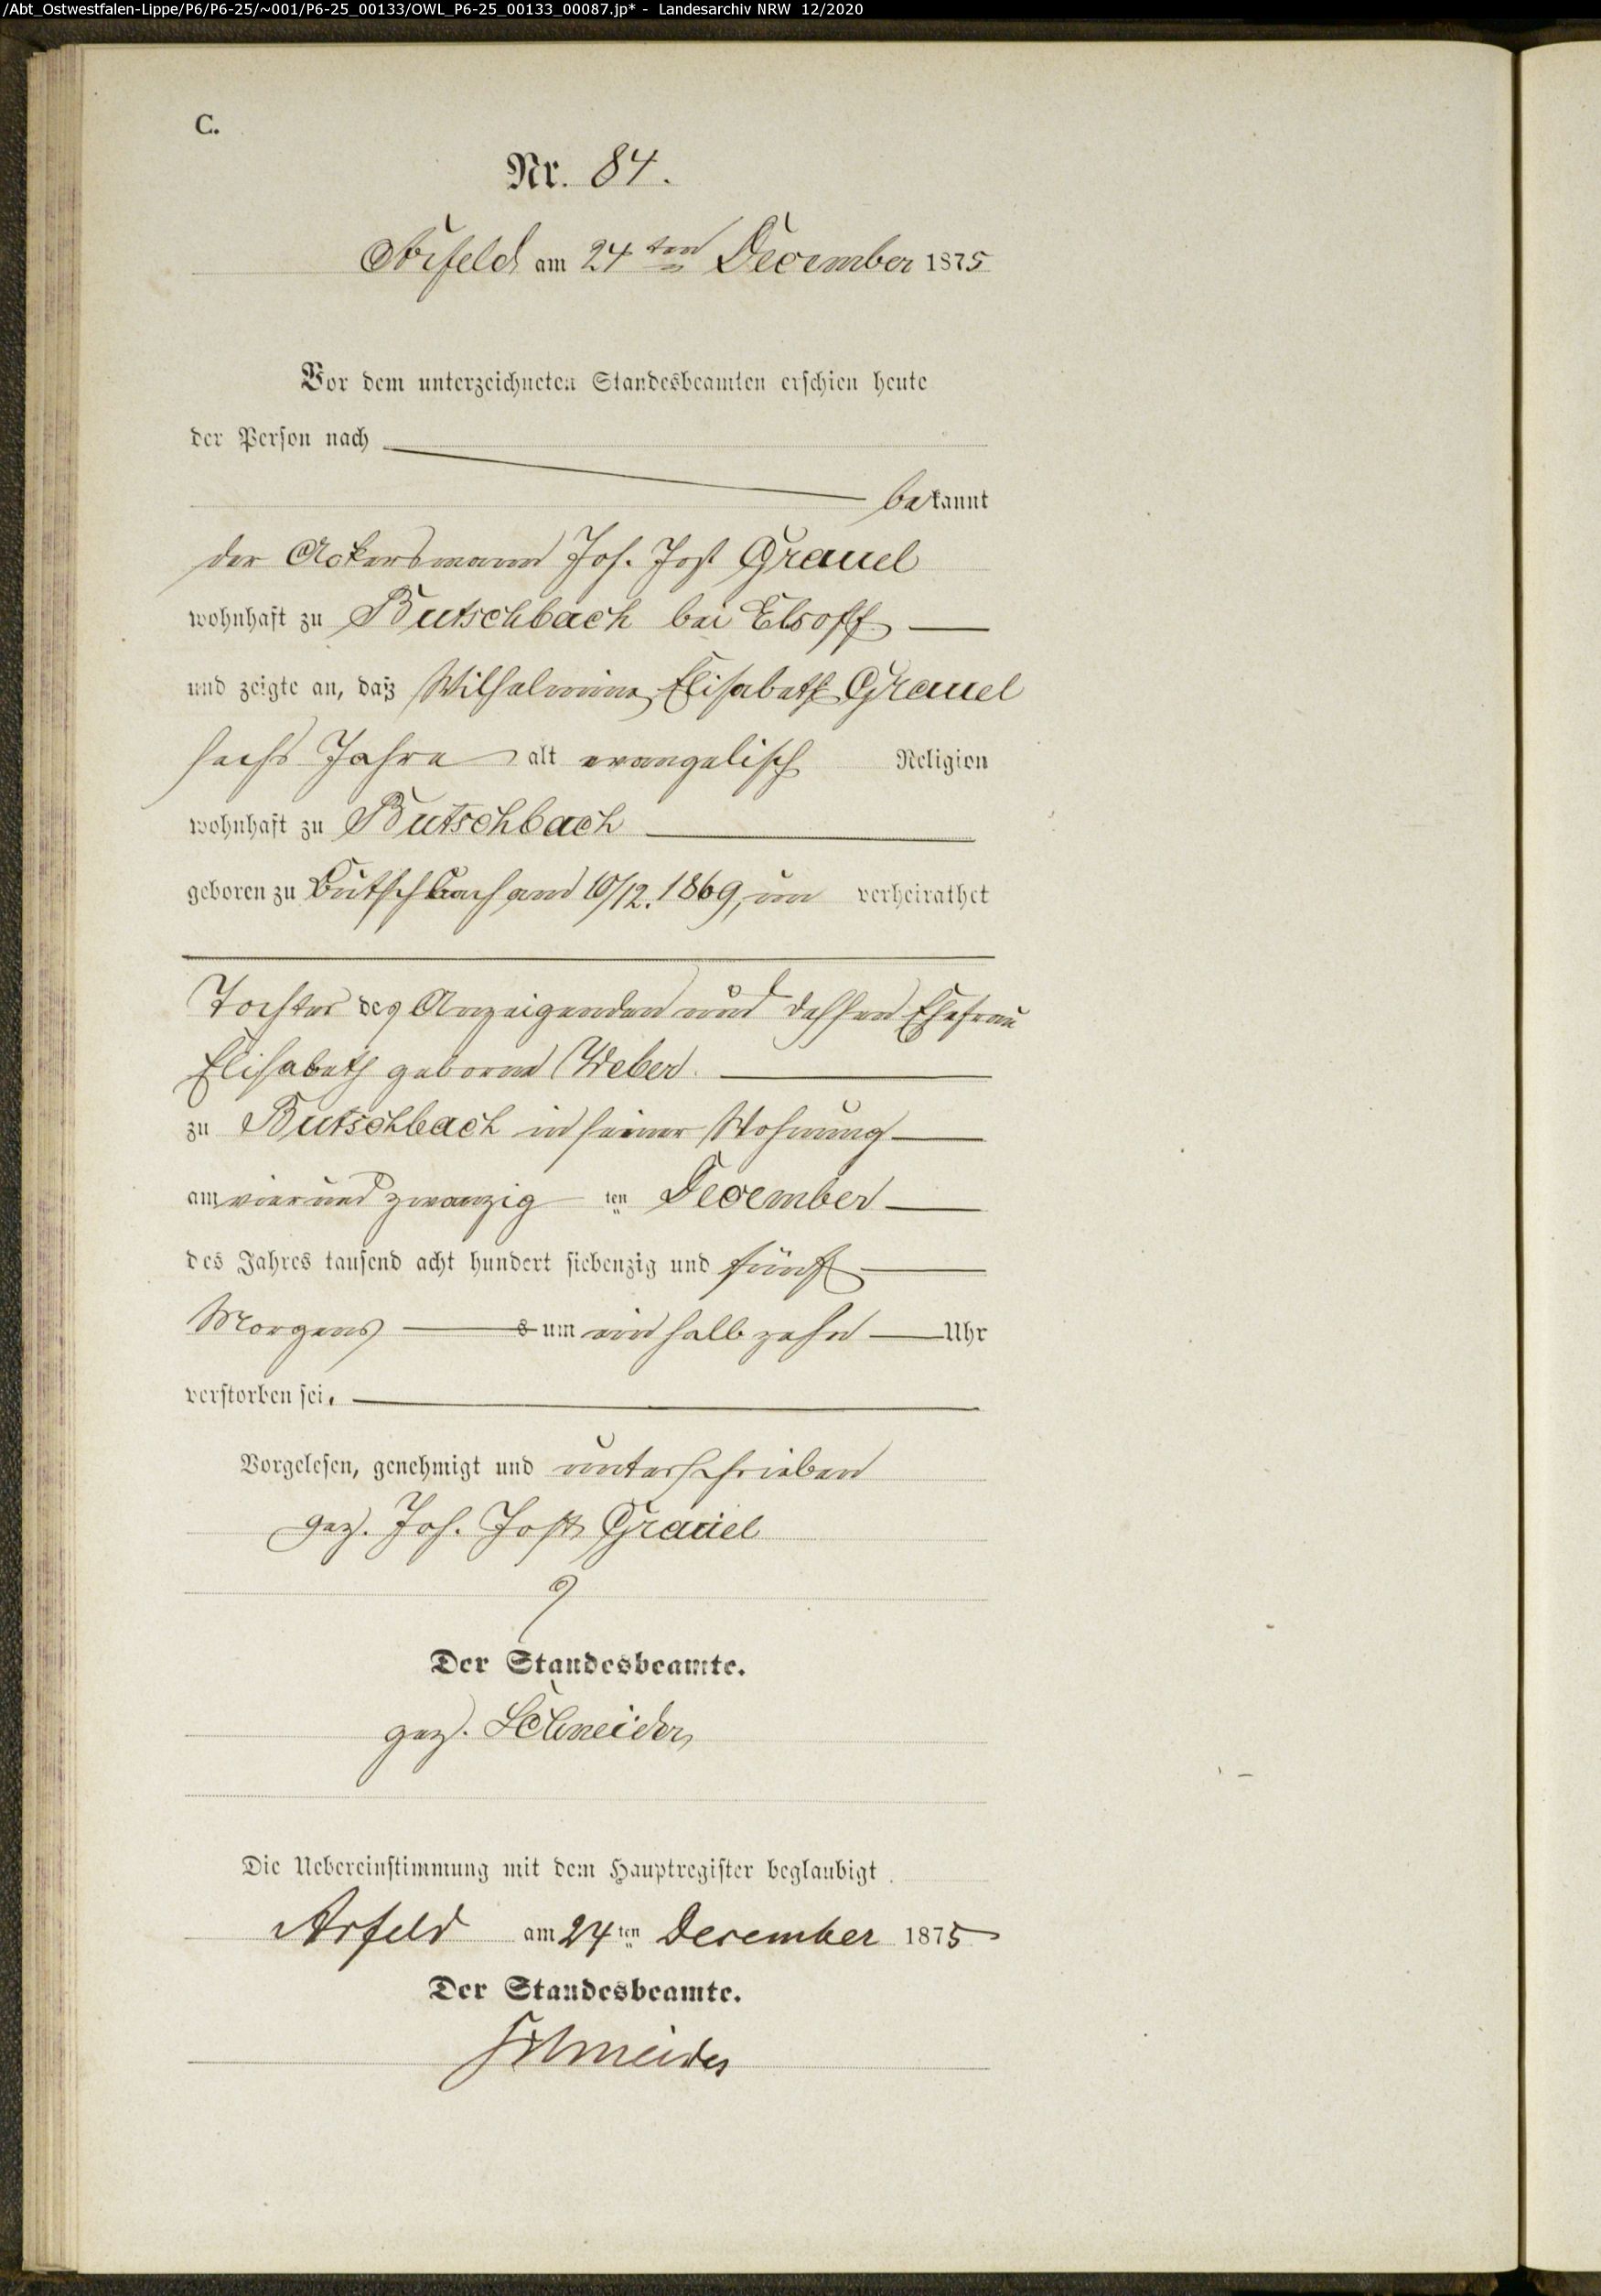 /Abt_Ostwestfalen-Lippe/P6/P6-25/~001/P6-25_00133/OWL_P6-25_00133_00087.jp* - Landesarchiv NRW 12/2020
C.
Nr. 84.
Arfeld am 24ten December 1875
Vor dem unterzeichneten Standesbeamten erschien heute
der Person nach
bekannt
der Ackersmann Joh. Jost Grauel
wohnhaft zu Butschbach bei Elsoff
und zeigte an, daß Wilhelmine Elisabeth Grauel
sechs Jahre alt evangelisch Religion
wohnhaft zu Butschbach
geboren zu Butschbach am 10/12. 1869, un verheirathet
Tochter des Anzeigenden und dessen Ehefrau
Elisabeth geborne Weber.
zu Butschbach in seiner Wohnung
am vier und zwanzig ten December
des Jahres tausend acht hundert siebenzig und fünf
Morgens um ein halb zehn Uhr
verstorben sei.
Vorgelesen, genehmigt und unterschrieben
gez. Joh. Jost Grauel
Der Standesbeamte.
gez. Schneider
Die Uebereinstimmung mit dem Hauptregister beglaubigt
Arfeld am 24ten December 1875
Der Standesbeamte.
Schneider